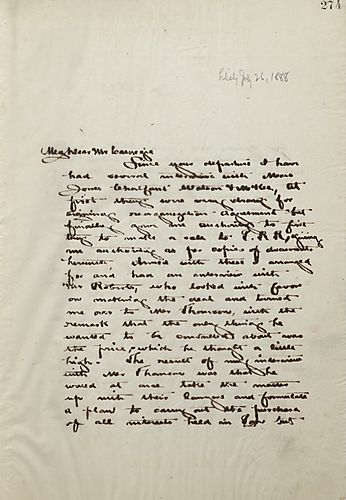 274
July 26, 1888
My Dear Mr Carnegie
Since your departure I have
had several interviews with Mess
Jones Chalfant Watson & McKee, At
first they were very strong for
signing reorganization agreement but
finally gave me authority to first
try to make a sale to P. R. R, giving
me authority as for copies of documents
herewith. Armed with these I arranged
for and had an interview with
Mr Roberts, who looked with favor
on making the deal and turned
me over to Mr Thomson, with the
remark that the only thing he
wanted to be consulted about was
the price, which he thought a little
high. The result of my interview
with Mr Thomson was that he
would at once take the matter
up with their lawyers and formulate
a plan to carry out the purchase
of all interests held in but